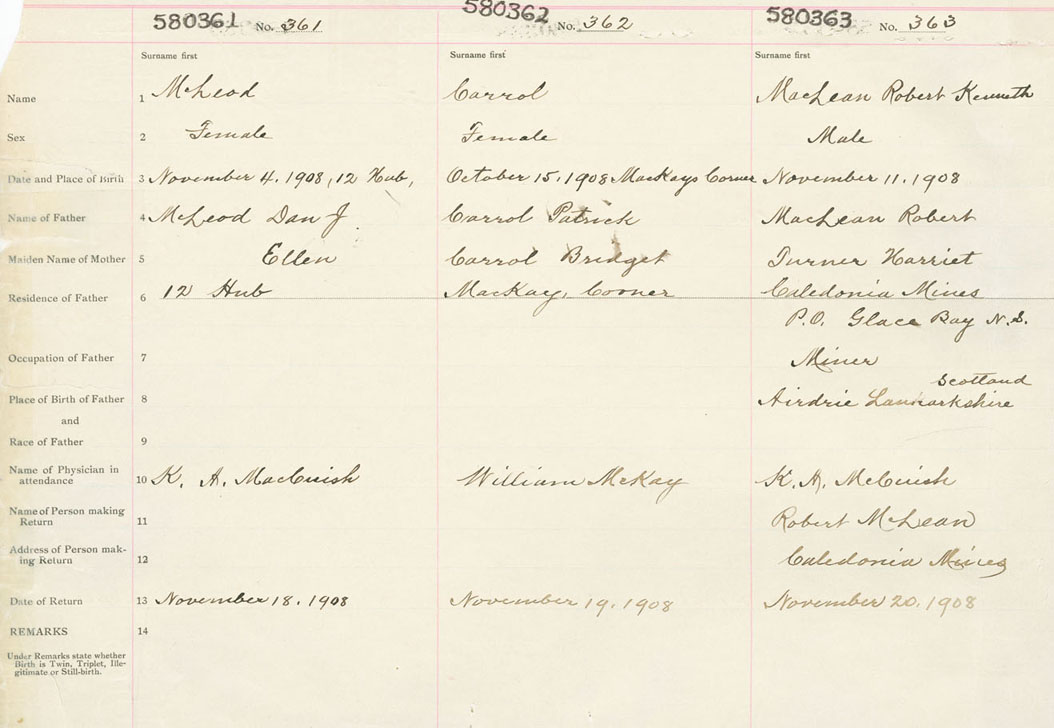 580361 No. 361 580362 No. 362 580363 No. 363
Surname first Surname first Surname first
Name 1 McLeod Carrol MacLean Robert Kenneth
Sex 2 Female Female Male
Date and Place of Birth 3 November 4. 1908, 12 Hub, October 15. 1908 MacKays Corner November 11. 1908
Name of Father 4 McLeod Dan J. Carrol Patrick MacLean Robert
Maiden Name of Mother 5 Ellen Carrol Bridget Turner Harriet
Residence of Father 6 12 Hub MacKay, Corner Caledonia Mines
P.O. Glace Bay N.S.
Occupation of Father 7 Miner
Scotland
Place of Birth of Father 8 Airdrie Lanarkshire
and
Race of Father 9
Name of Physician in
attendance 10 K. A. MacCuish William McKay K. A. McCuish
Name of Person making
Return 11 Robert McLean
Address of Person mak-
ing Return 12 Caledonia Mines
Date of Return 13 November 18. 1908 November 19. 1908 November 20. 1908
REMARKS 14
Under Remarks state whether
Birth is Twin, Triplet, Ille-
gitimate or Still-birth.